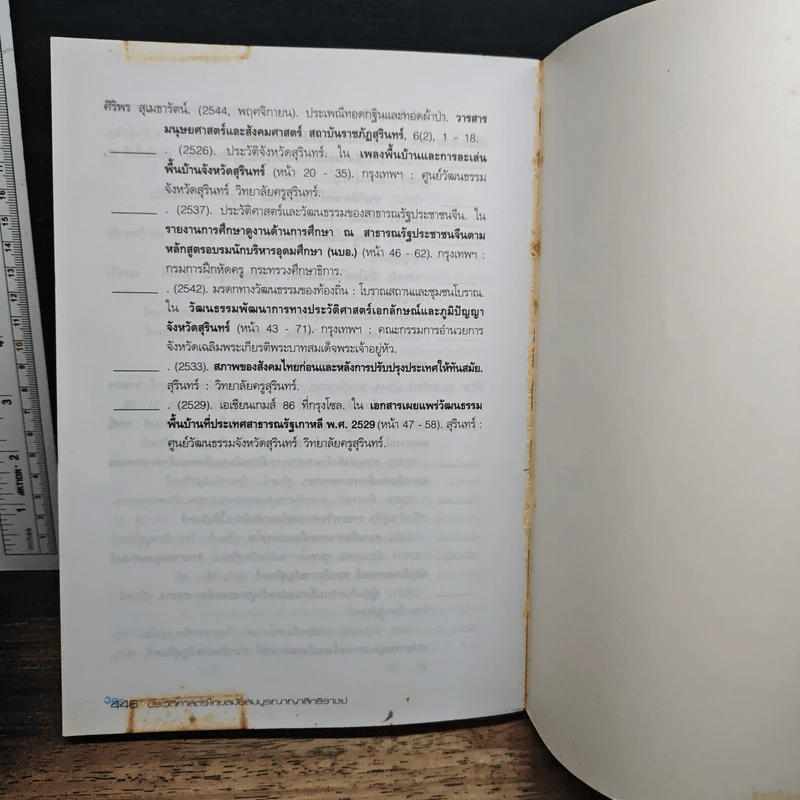 ศิริพร สุเมธารัตน์. (2544, พฤศจิกายน). ประเพณีทอดกฐินและทอดผ้าป่า. วารสาร
มนุษยศาสตร์และสังคมศาสตร์ สถาบันราชภัฏสุรินทร์, 6(2), 1 - 18.
________ . (2526). ประวัติจังหวัดสุรินทร์. ใน เพลงพื้นบ้านและการละเล่น
พื้นบ้านจังหวัดสุรินทร์ (หน้า 20 - 35). กรุงเทพฯ : ศูนย์วัฒนธรรม
จังหวัดสุรินทร์ วิทยาลัยครูสุรินทร์.
________ . (2537). ประวัติศาสตร์และวัฒนธรรมของสาธารณรัฐประชาชนจีน. ใน
รายงานการศึกษาดูงานด้านการศึกษา ณ สาธารณรัฐประชาชนจีนตาม
หลักสูตรอบรมนักบริหารอุดมศึกษา (นบอ.) (หน้า 46 - 62). กรุงเทพฯ :
กรมการฝึกหัดครู กระทรวงศึกษาธิการ.
________ . (2542). มรดกทางวัฒนธรรมของท้องถิ่น : โบราณสถานและชุมชนโบราณ.
ใน วัฒนธรรมพัฒนาการทางประวัติศาสตร์เอกลักษณ์และภูมิปัญญา
จังหวัดสุรินทร์ (หน้า 43 - 71). กรุงเทพฯ : คณะกรรมการอำนวยการ
จังหวัดเฉลิมพระเกียรติพระบาทสมเด็จพระเจ้าอยู่หัว.
________ . (2533). สภาพของสังคมไทยก่อนและหลังการปรับปรุงประเทศให้ทันสมัย.
สุรินทร์ : วิทยาลัยครูสุรินทร์.
________ . (2529). เอเชียนเกมส์ 86 ที่กรุงโซล. ใน เอกสารเผยแพร่วัฒนธรรม
พื้นบ้านที่ประเทศสาธารณรัฐเกาหลี พ.ศ. 2529 (หน้า 47 - 58). สุรินทร์ :
ศูนย์วัฒนธรรมจังหวัดสุรินทร์ วิทยาลัยครูสุรินทร์.
446 ประวัติศาสตร์ไทยสมัยสมบูรณาญาสิทธิราชย์